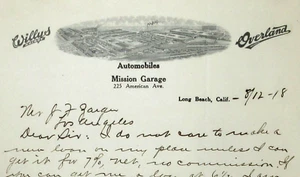 Willys Knight
Overland
Automobiles
Mission Garage
225 American Ave.
Long Beach, Calif. - 8/12-18
Mr J F Zarger
Los Angeles
Dear Sir: I do not care to make a
new loan on my place unless I can
get it for 7%, net, no commission. If
you can get me a loan at 6%